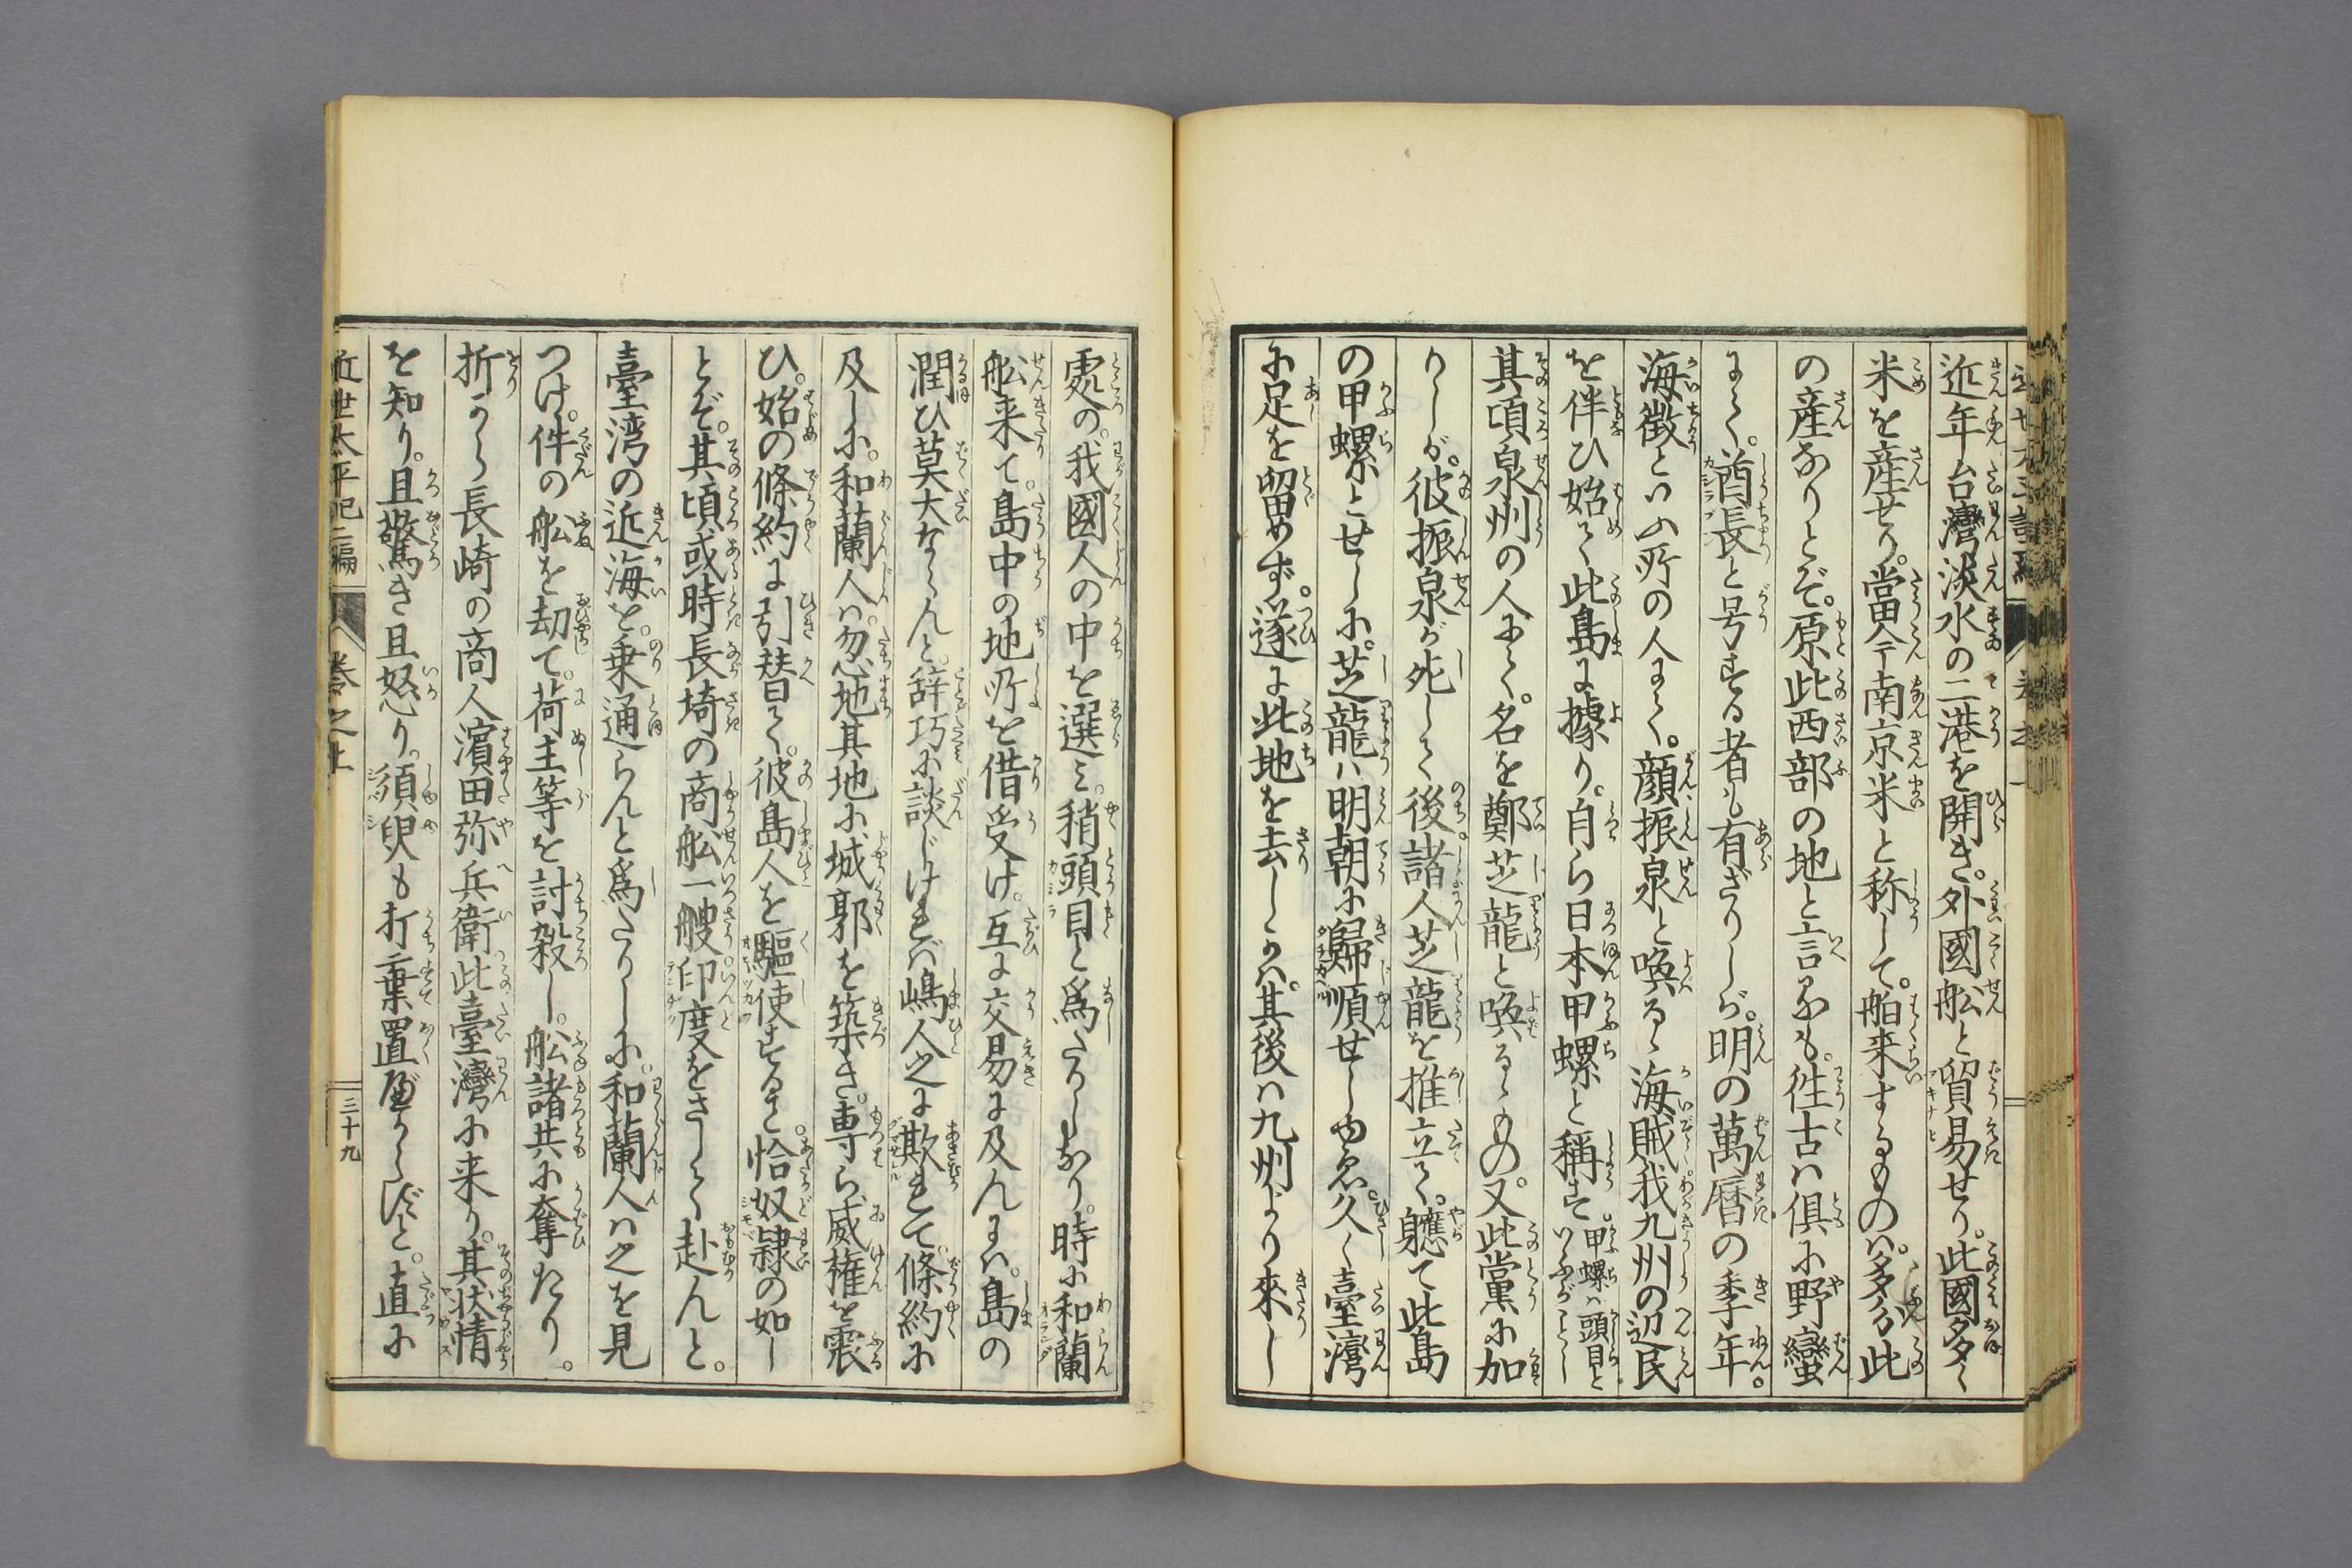 近年台灣淡水の二港を開き。外國船と貿易せり。此國多く
米を産せり。當今南京米と称して。舶来するものハ。多分此
の産なりとぞ。原此西部の地と言へども。徃古ハ倶に野蠻
にて。酋長と号する者も有ざりしが。明の萬暦の季年。
海徴といふ所の人にて。顔振泉と喚るゝ海賊我九州の辺民
を伴ひ始て此島に據り。自ら日本甲螺と稱す。甲螺ハ頭目と
いふがごとし
其頃泉州の人にて。名を鄭芝龍と喚るゝもの。又此黨に加
りしが。彼振泉が死して後。諸人芝龍を推立て。軈て此島
の甲螺とせしに。芝龍ハ明朝に歸順せしゆゑ。久く臺灣
に足を留めず。遂に此地を去しかバ。其後ハ九州より來し
處の。我國人の中を選ミ。稍頭目と爲たりしなり。時に和蘭
舩来て。島中の地所を借受け。互に交易に及んにハ。島の
潤ひ莫大ならんと。辞巧に談じければ嶋人之に欺れて。條約に
及しに。和蘭人ハ。忽地其地に城郭を築き。専ら威権を震
ひ。始の條約に引替て。彼島人を驅使すること。恰奴隷の如し
とぞ。其頃或時長埼の商舩一艘。印度をさして赴んと。
臺湾の近海を。乗通らんと爲たりしに。和蘭人ハ之を見
つけ。件の舩を刧て。荷主等を討殺し。舩諸共に奪たり。
折から長崎の商人濵田弥兵衛此臺灣に来り。其状情
を知り。且驚き且怒り。須臾も打棄置べからずと。直に
近世太平記二編
卷之上
三十九